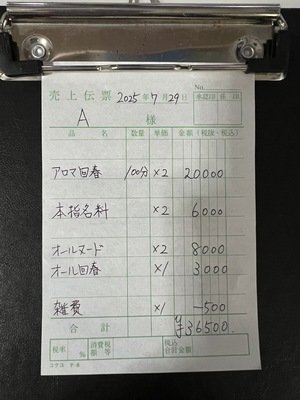 No.
売上伝票 2025年7月29日 承認印 係印
A 様
品名 数量 単価 金額(税抜・税込)
アロマ回春 100分 ×2 20000
本指名料 ×2 6000
オールヌード ×2 8000
オール回春 ×1 3000
雑費 ×1 -500
合計 ¥36500
税率 % 消費税額等 税込合計金額
コクヨ テ-8